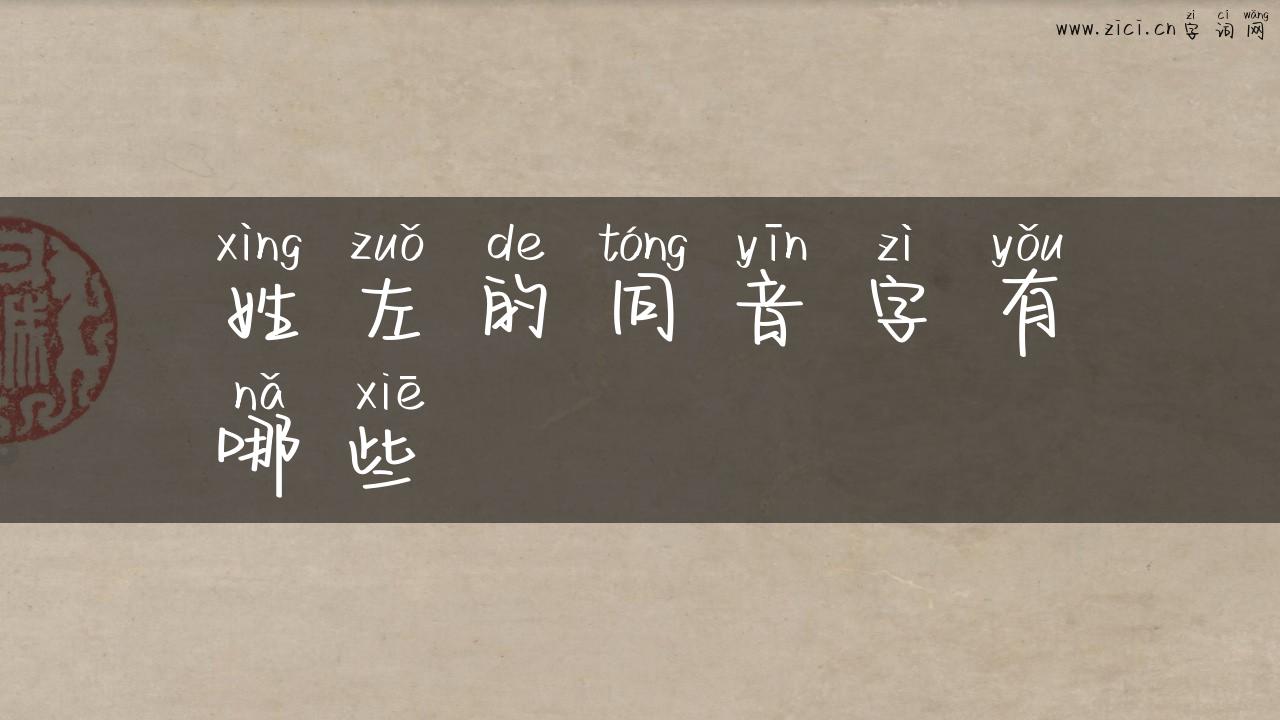 zì cí wǎng
www.zici.cn 字词网
xìng zuǒ de tóng yīn zì yǒu
姓左的同音字有
nǎ xiē
哪些